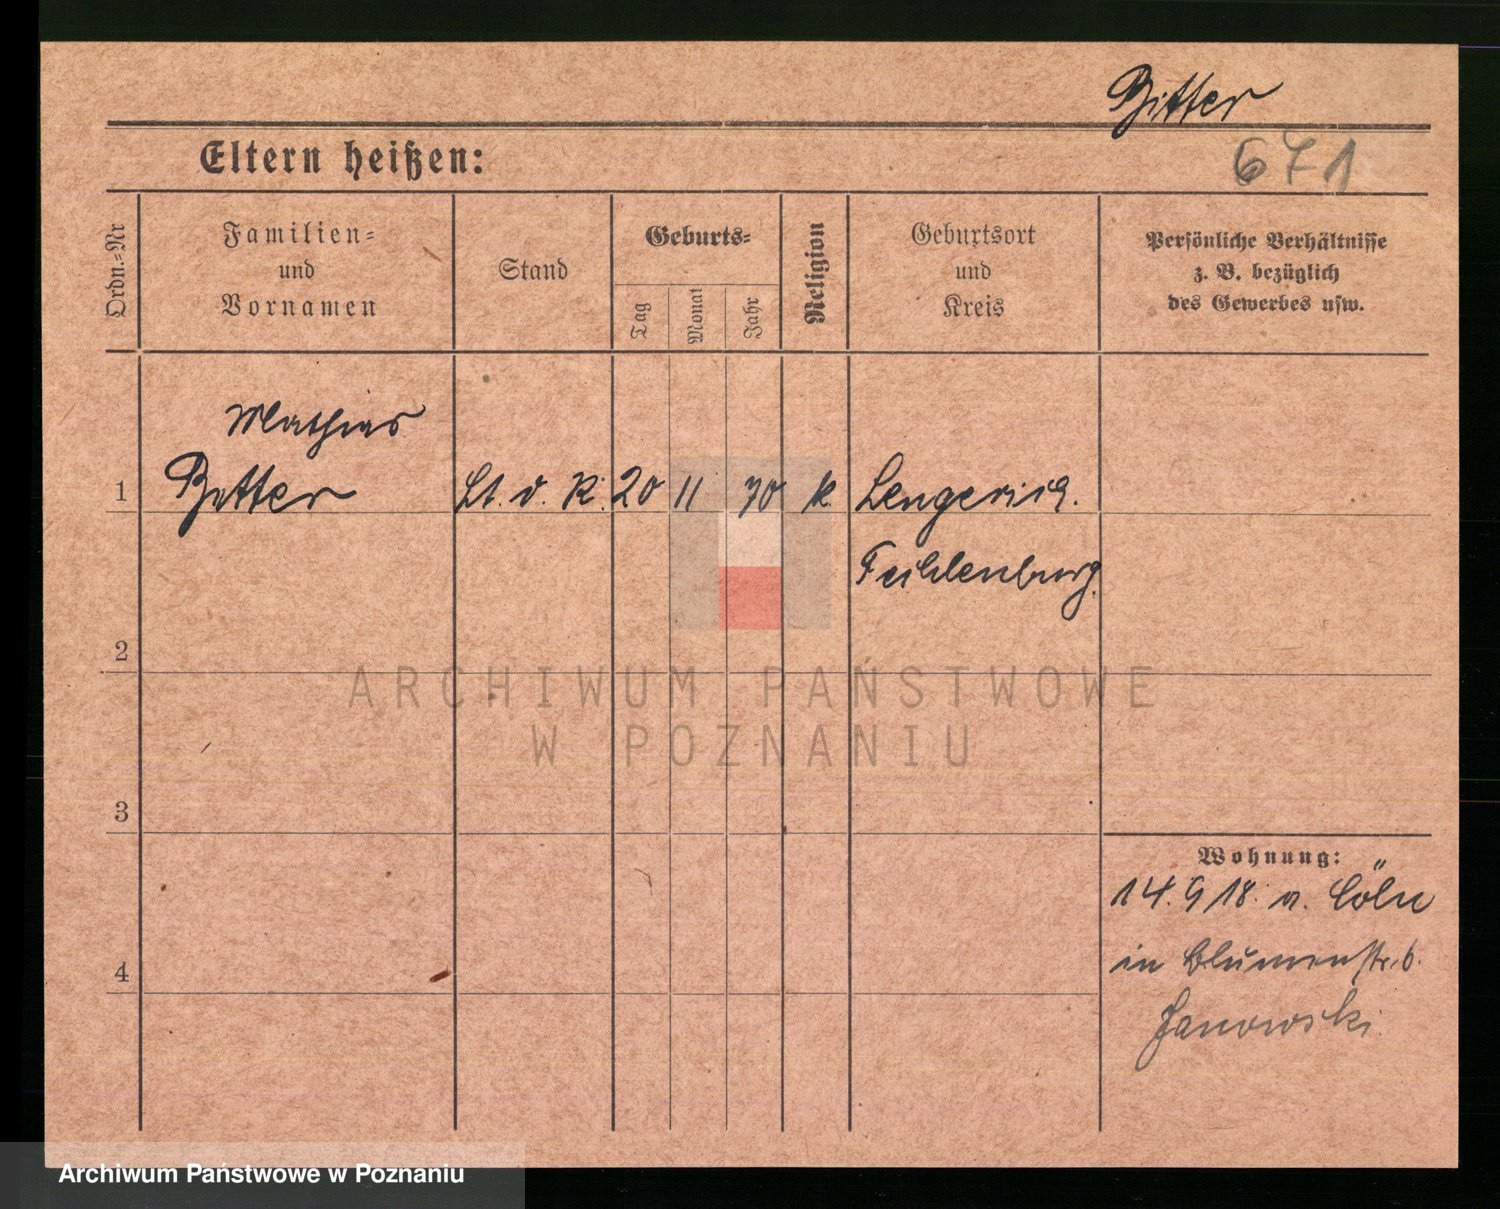 Bitter
671
Eltern heißen:
Ordn.=Nr
Familien=
und
Vornamen
Stand
Geburts=
Tag
Monat
Jahr
Religion
Geburtsort
und
Kreis
Persönliche Verhältnisse
z. B. bezüglich
des Gewerbes usw.
Mathias
1 Bitter Lt. d. R. 20 11 70 k. Lengerich.
2
3
4
Wohnung:
14. 9 18. a. Cöln
in Blumenstr. 6.
Janowski
ARCHIWUM PAŃSTWOWE
W POZNANIU
Archiwum Państwowe w Poznaniu